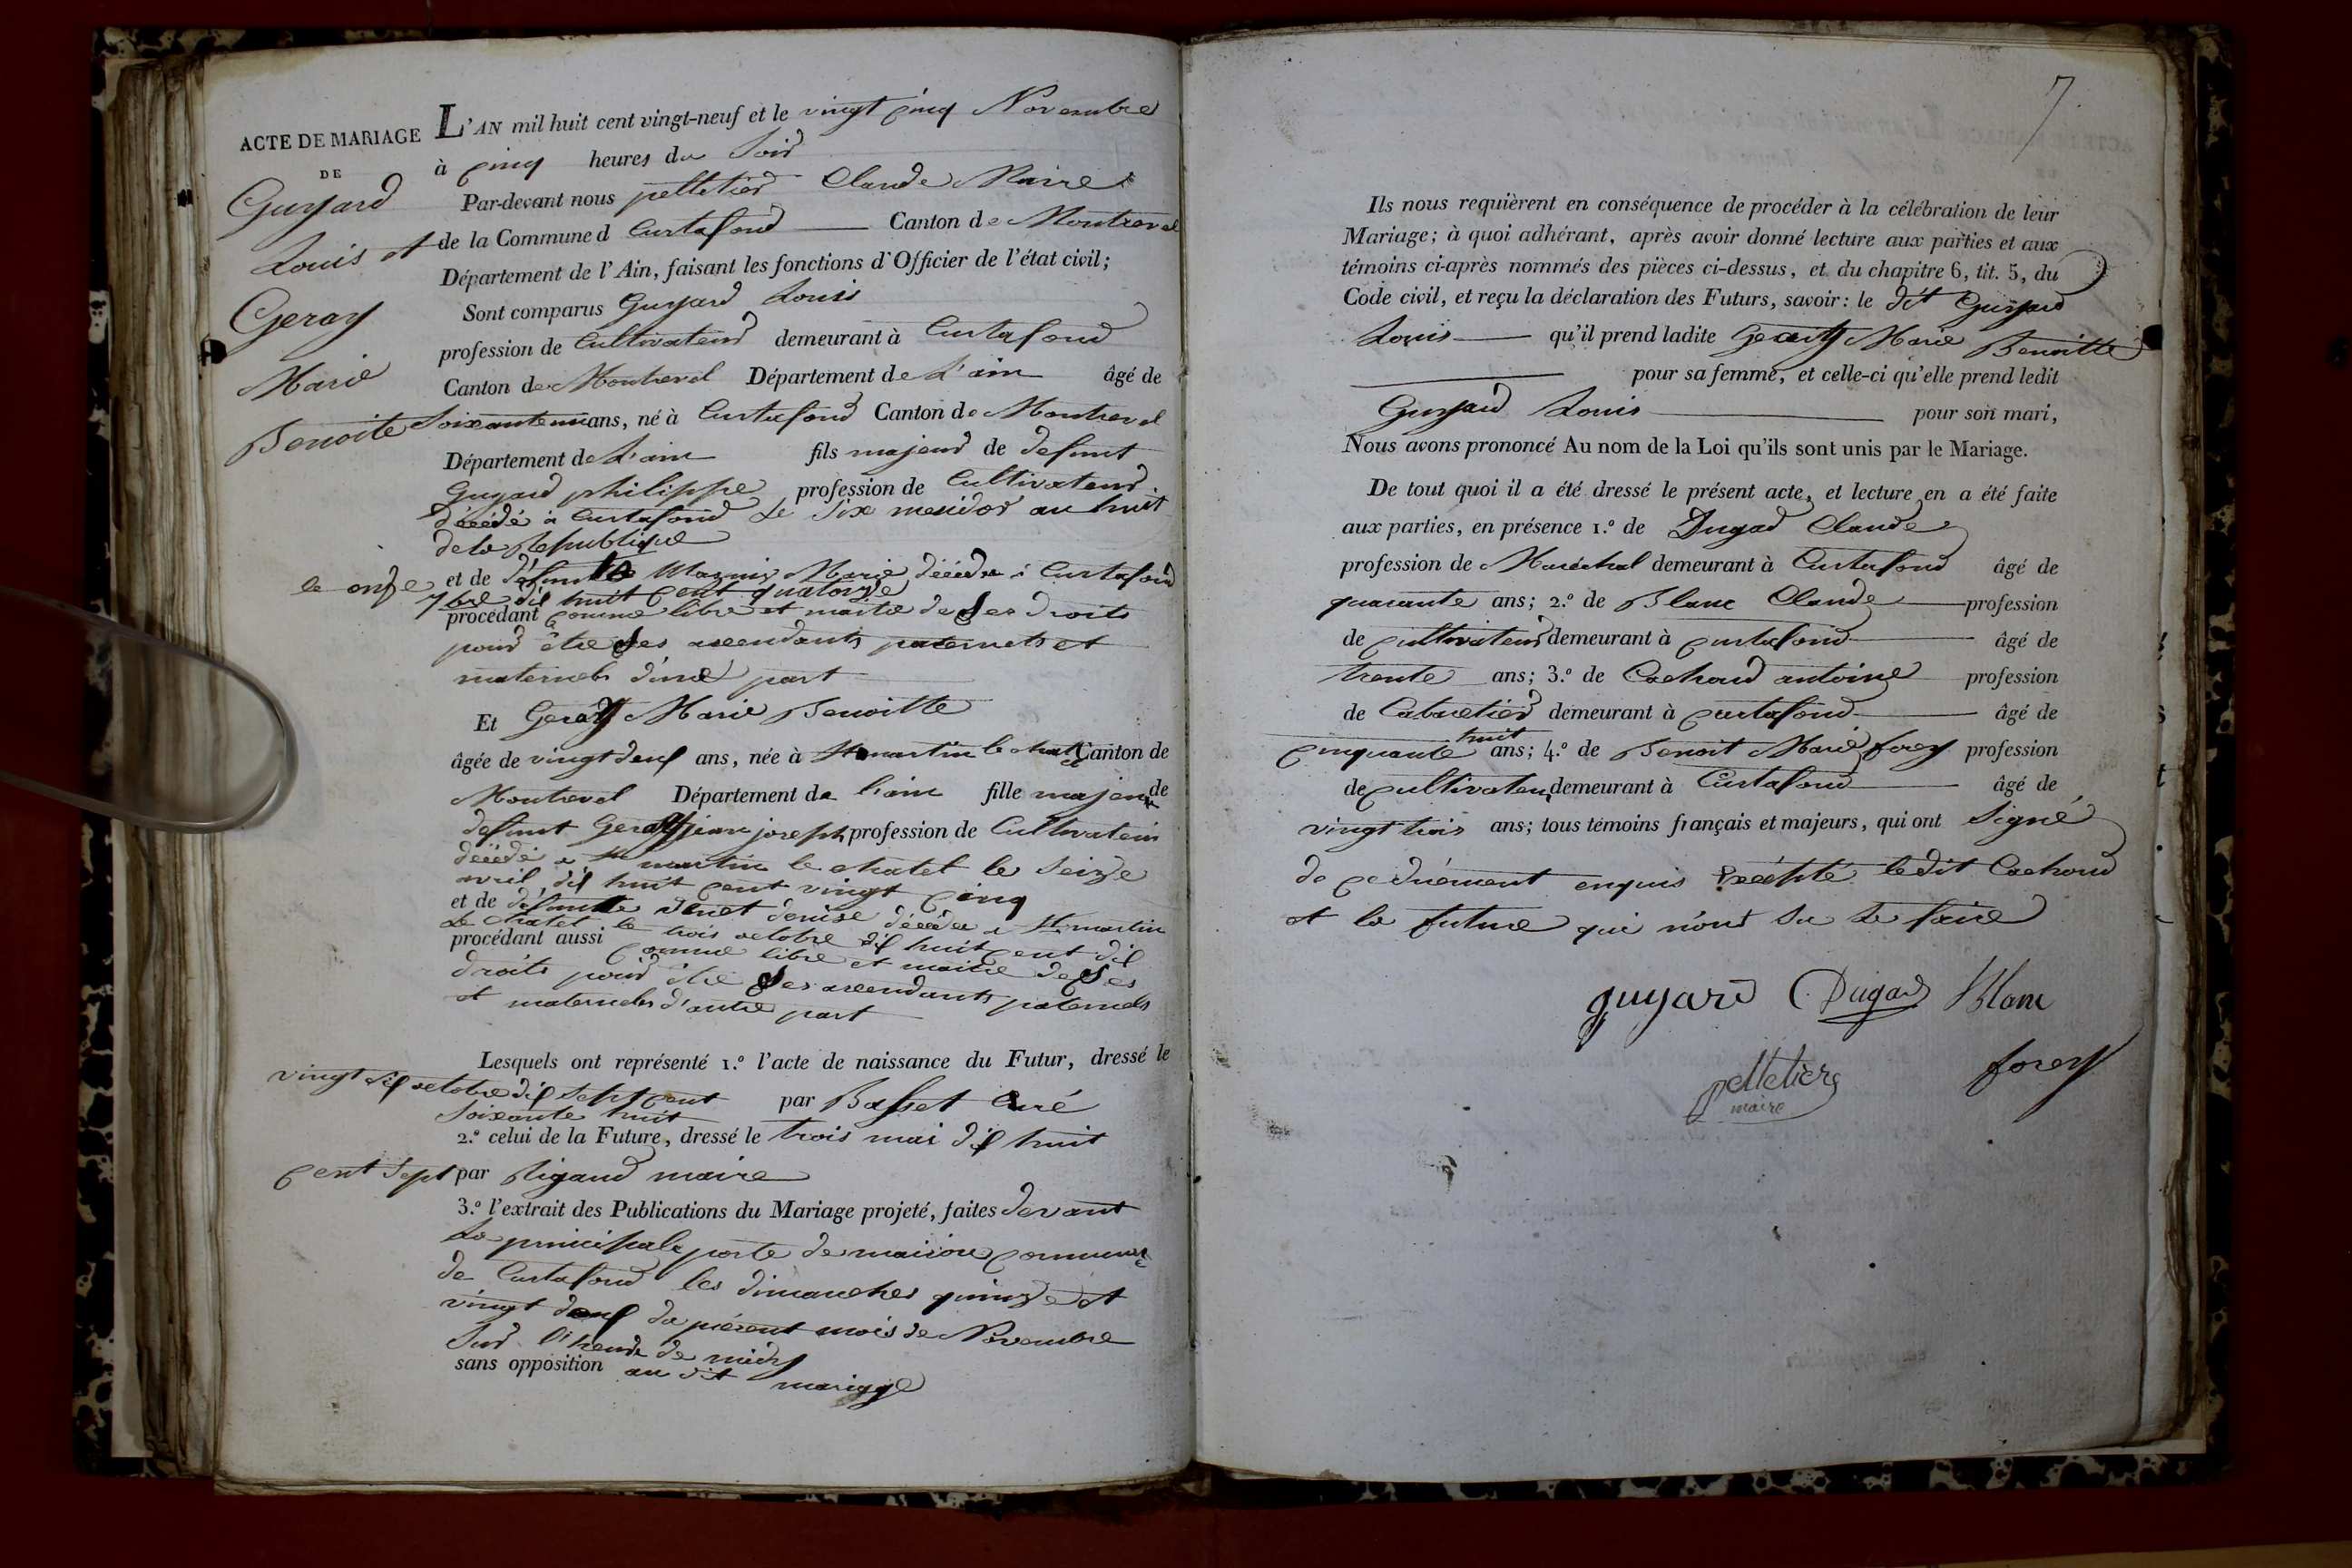 ACTE DE MARIAGE
DE
Guyard
Louis et
Geray
Marie
Benoite
L'AN mil huit cent vingt-neuf et le vingt cinq Novembre
à cinq heures du Soir
Par-devant nous pelletier Claude Maire
de la Commune d Curtafond Canton de Montrevel
Département de l'Ain, faisant les fonctions d'Officier de l'état civil;
Sont comparus Guyard Louis
profession de Cultivateur demeurant à Curtafond
Canton de Montrevel Département de L'ain âgé de
Soixante un ans, né à Curtafond Canton de Montrevel
Département de L'ain fils majeur de defunt
Guyard philippe profession de Cultivateur
Décédé à Curtafond Le Six messidor an huit
de la Republique
et de defunte Marie décédée à Curtafond le onze
7bre dix huit cent quatorze
procédant comme libre et maitre de Ses droits
pour être Ses ascendants paternels et
maternels d'une part
Et Geray Marie Benoitte
âgée de vingt deux ans, née à St martin le chatel Canton de
Montrevel Département de l'ain fille majeure de
defunt Geray jean joseph profession de Cultivateur
décédé a St martin le chatel le Seize
avril dix huit cent vingt cinq
et de defunte denise décédée a St martin
Le chatel le trois octobre dix huit cent dix
procédant aussi comme libre et maitre de Ses
droits pour être Ses ascendants paternels
et maternels d'autre part
Lesquels ont représenté 1.º l'acte de naissance du Futur, dressé le
vingt six octobre dix Sept cent
Soixante huit par Basset Curé
2.º celui de la Future, dressé le trois mai dix huit
cent Sept par Rigaud maire
3.º l'extrait des Publications du Mariage projeté, faites devant
La principale porte de maison commune
de Curtafond les dimanches quinze et
vingt deux du présent mois de Novembre
Sur l'heure de midy
sans opposition au dit mariage
7
Ils nous requièrent en conséquence de procéder à la célébration de leur
Mariage; à quoi adhérant, après avoir donné lecture aux parties et aux
témoins ci-après nommés des pièces ci-dessus, et du chapitre 6, tit. 5, du
Code civil, et reçu la déclaration des Futurs, savoir: le dit Guyard
Louis qu'il prend ladite Geray Marie Benoitte
pour sa femme, et celle-ci qu'elle prend ledit
Guyard Louis pour son mari,
Nous avons prononcé Au nom de la Loi qu'ils sont unis par le Mariage.
De tout quoi il a été dressé le présent acte, et lecture en a été faite
aux parties, en présence 1.º de Dugad Claude
profession de Maréchal demeurant à Curtafond âgé de
quarante ans; 2.º de Blanc Claude profession
de cultivateur demeurant à curtafond âgé de
trente ans; 3.º de Cachoud antoine profession
de Cabaretier demeurant à curtafond âgé de
cinquante huit ans; 4.º de Benoit Marie forey profession
de cultivateur demeurant à Curtafond âgé de
vingt trois ans; tous témoins français et majeurs, qui ont Signé
de ce duement enquis Excépté ledit Cachoud
et la future qui n'ont Su Le faire
guyard Dugad Blanc
pelletier forey
maire